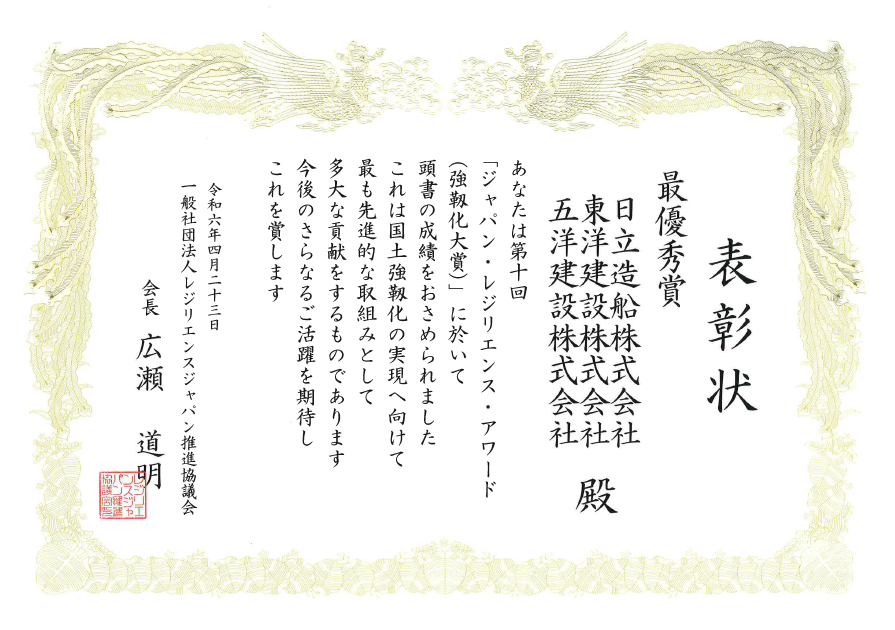 表彰状
最優秀賞
日立造船株式会社
東洋建設株式会社
五洋建設株式会社
殿
あなたは第十回
「ジャパン・レジリエンス・アワード
(強靱化大賞)」に於いて
頭書の成績をおさめられました
これは国土強靱化の実現へ向けて
最も先進的な取組みとして
多大な貢献をするものであります
今後のさらなるご活躍を期待し
これを賞します
令和六年四月二十三日
一般社団法人レジリエンスジャパン推進協議会
会長 広瀬 道明
レジリエ
ンスジャ
パン推進